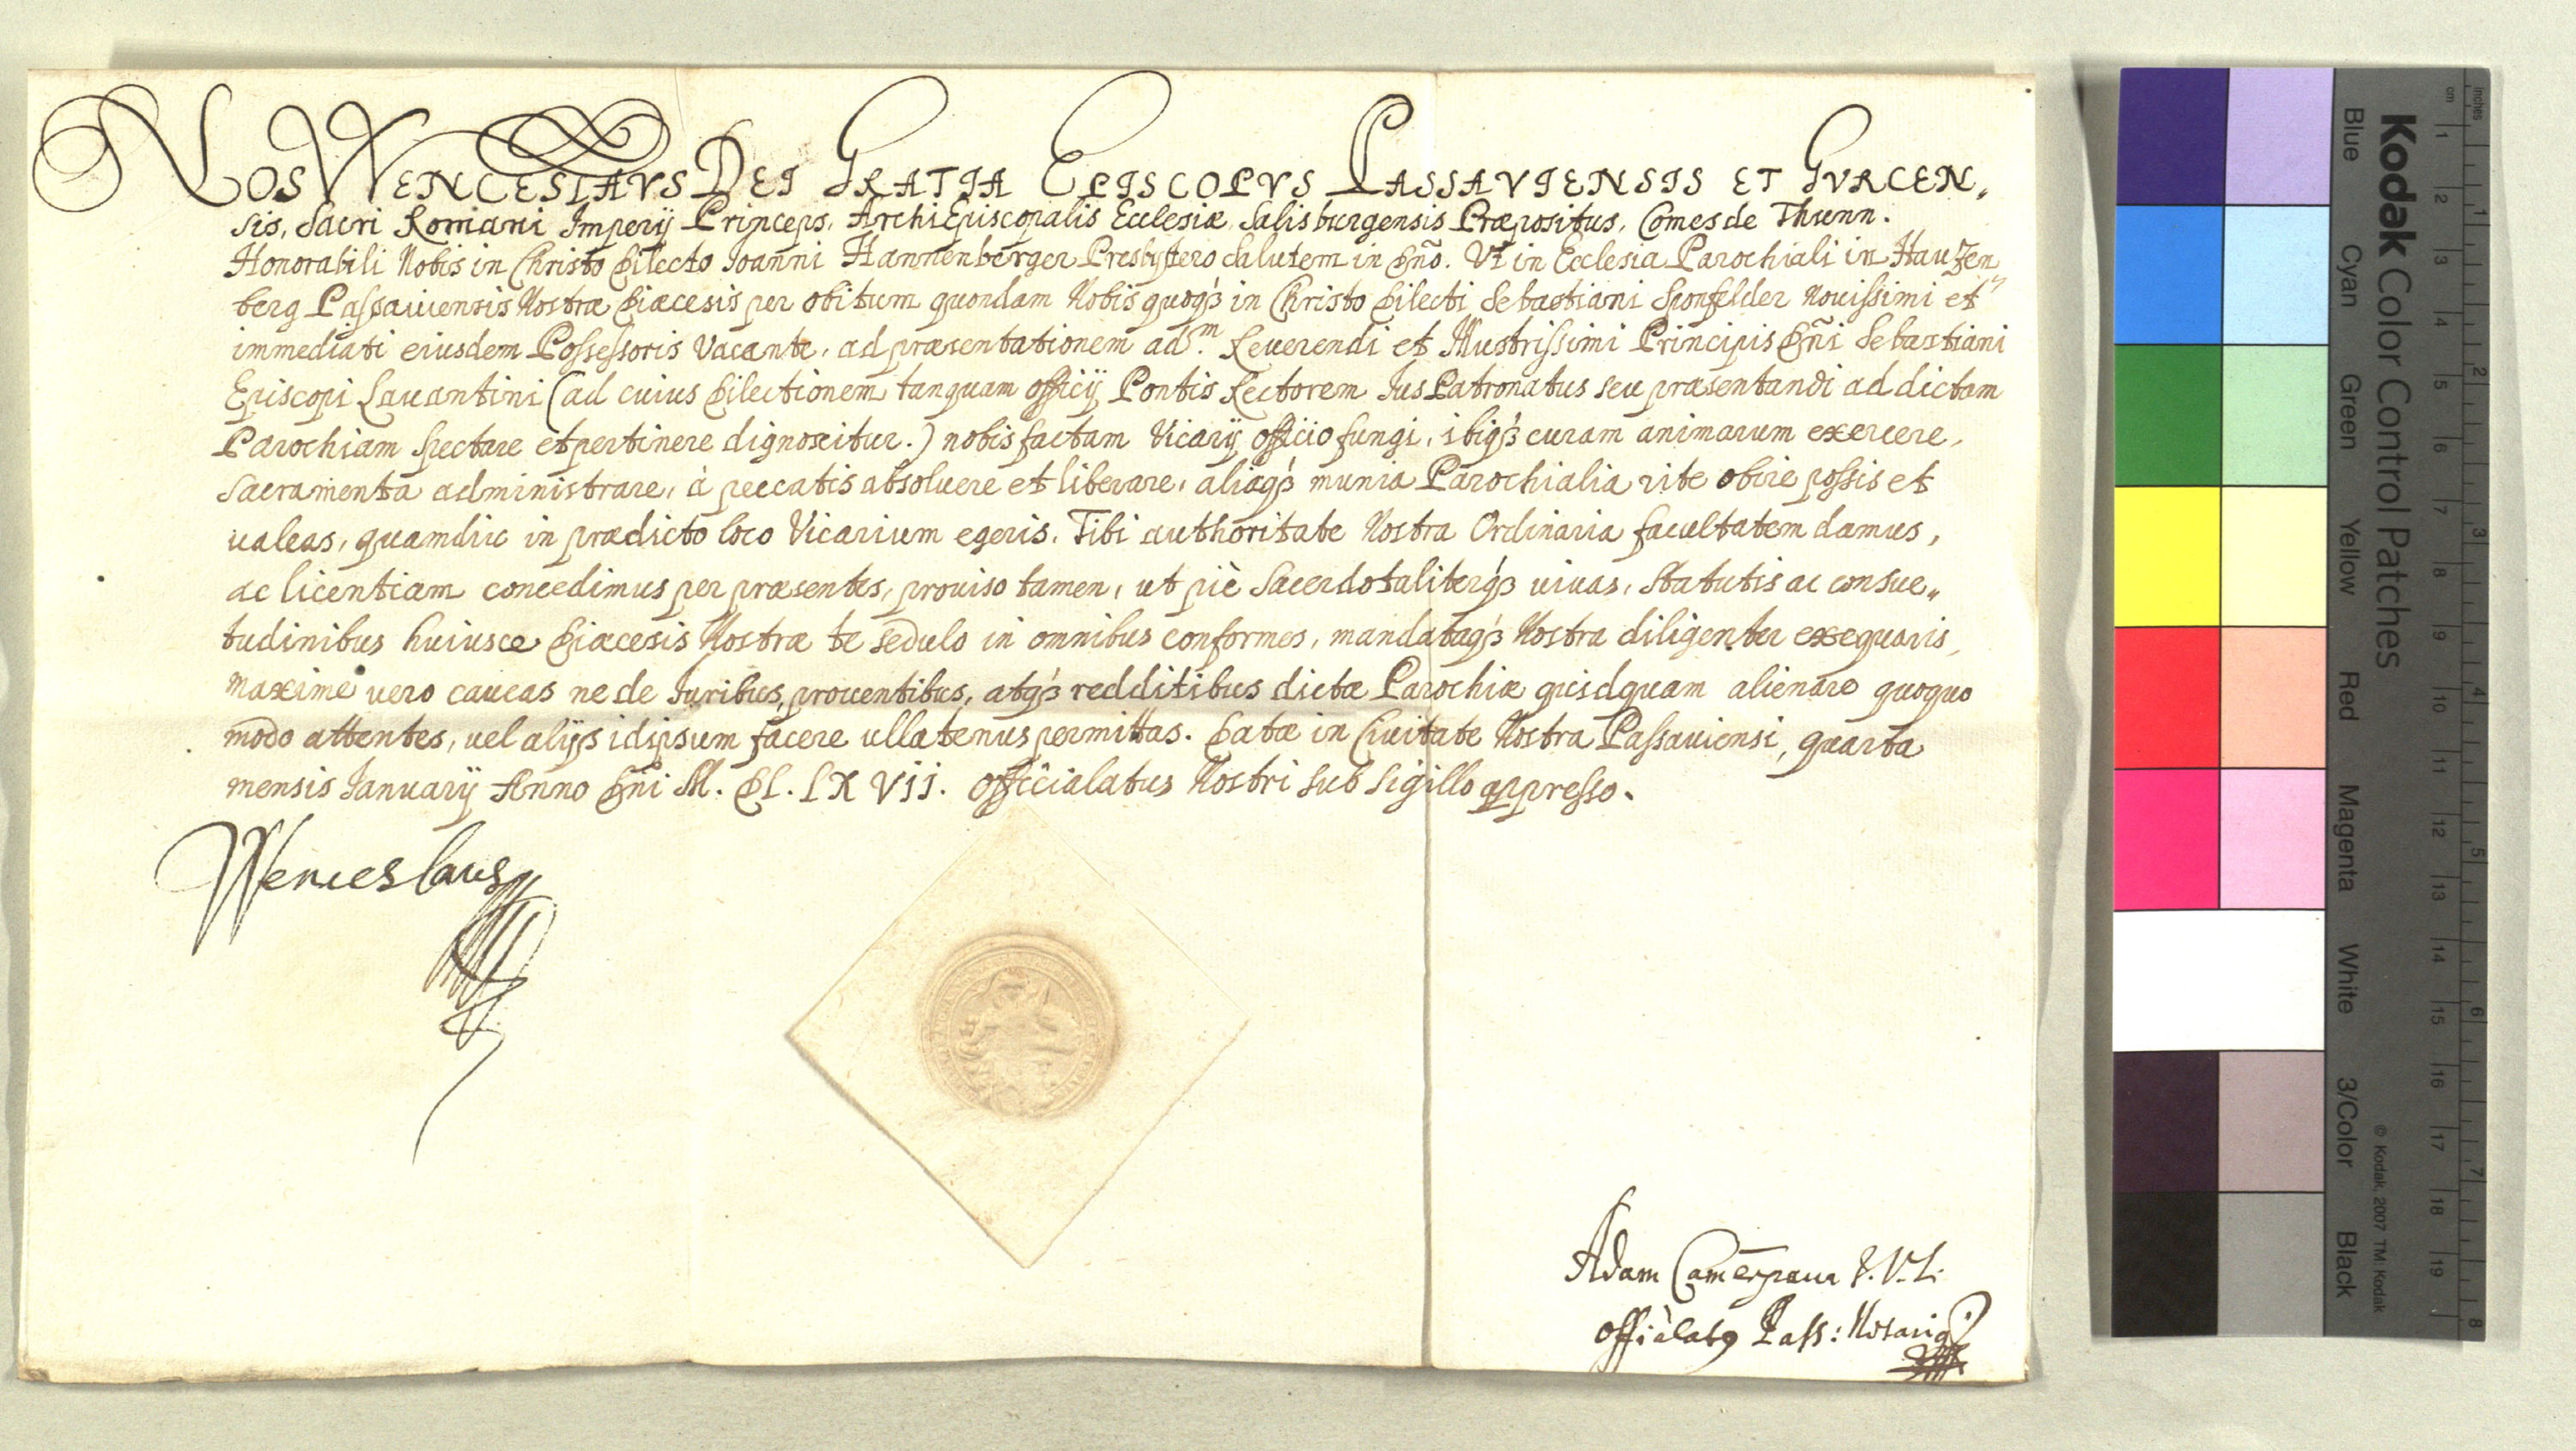 NOS WENCESLAVS DEI GRATIA EPISCOPVS PASSAVIENSIS ET GVRCEN„
sis, Sacri Romani Imperij Princeps, ArchiEpiscopalis Ecclesiæ Salisburgensis Præpositus, Comes de Thunn.
Honorabili Nobis in Christo Dilecto Joanni Hannenberger Presbytero Salutem in Dño. Vt in Ecclesia Parochiali in Hauzen„
berg Passauiensis Nostræ Diæcesis per obitum quondam Nobis quoq́ʒ in Christo Dilecti Sebastiani Sponfelder Nouissimi et
immediati eiusdem Possessoris Vacante, ad præsentationem ad.ᵐ Reuerendi et Illustrissimi Principis Dñi Sebastiani
Episcopi Lauantini (ad cuius Dilectionem tanquam officij Pontis Rectorem Jus Patronatus seu præsentandi ad dictam
Parochiam spectare et pertinere dignoscitur.) nobis factam Vicarij officio fungi, ibiq́ʒ curam animarum exercere,
Sacramenta administrare, à peccatis absoluere et liberare, aliaq́ʒ munia Parochialia rite obire possis et
ualeas, quamdiu in prædicto loco Vicarium egeris. Tibi authoritate Nostra Ordinaria facultatem damus,
ac licentiam concedimus per præsentes, prouiso tamen, ut piè Sacerdotaliterq́ʒ uiuas, Statutis ac consue„
tudinibus huiusce Diæcesis Nostræ te sedulo in omnibus conformes, mandataq́ʒ Nostra diligenter exequaris,
maxime uero caueas ne de Juribus, prouentibus, atq́ʒ redditibus dictæ Parochiæ quidquam alienare quoquo
modo attentes, uel alijs idipsum facere ullatenus permittas. Datæ in Ciuitate Nostra Passauiensi, quarta
mensis Januarij Anno Dñi M. DC. LXVII. Officialatus Nostri sub sigillo appresso.
Wenceslaus
Adam
Pass: Notarig
Kodak Color Control Patches
Blue Cyan Green Yellow Red Magenta White 3/Color Black
© Kodak, 2007 TM: Kodak
cm 1 2 3 4 5 6 7 8 9 10 11 12 13 14 15 16 17 18 19
inches 1 2 3 4 5 6 7 8